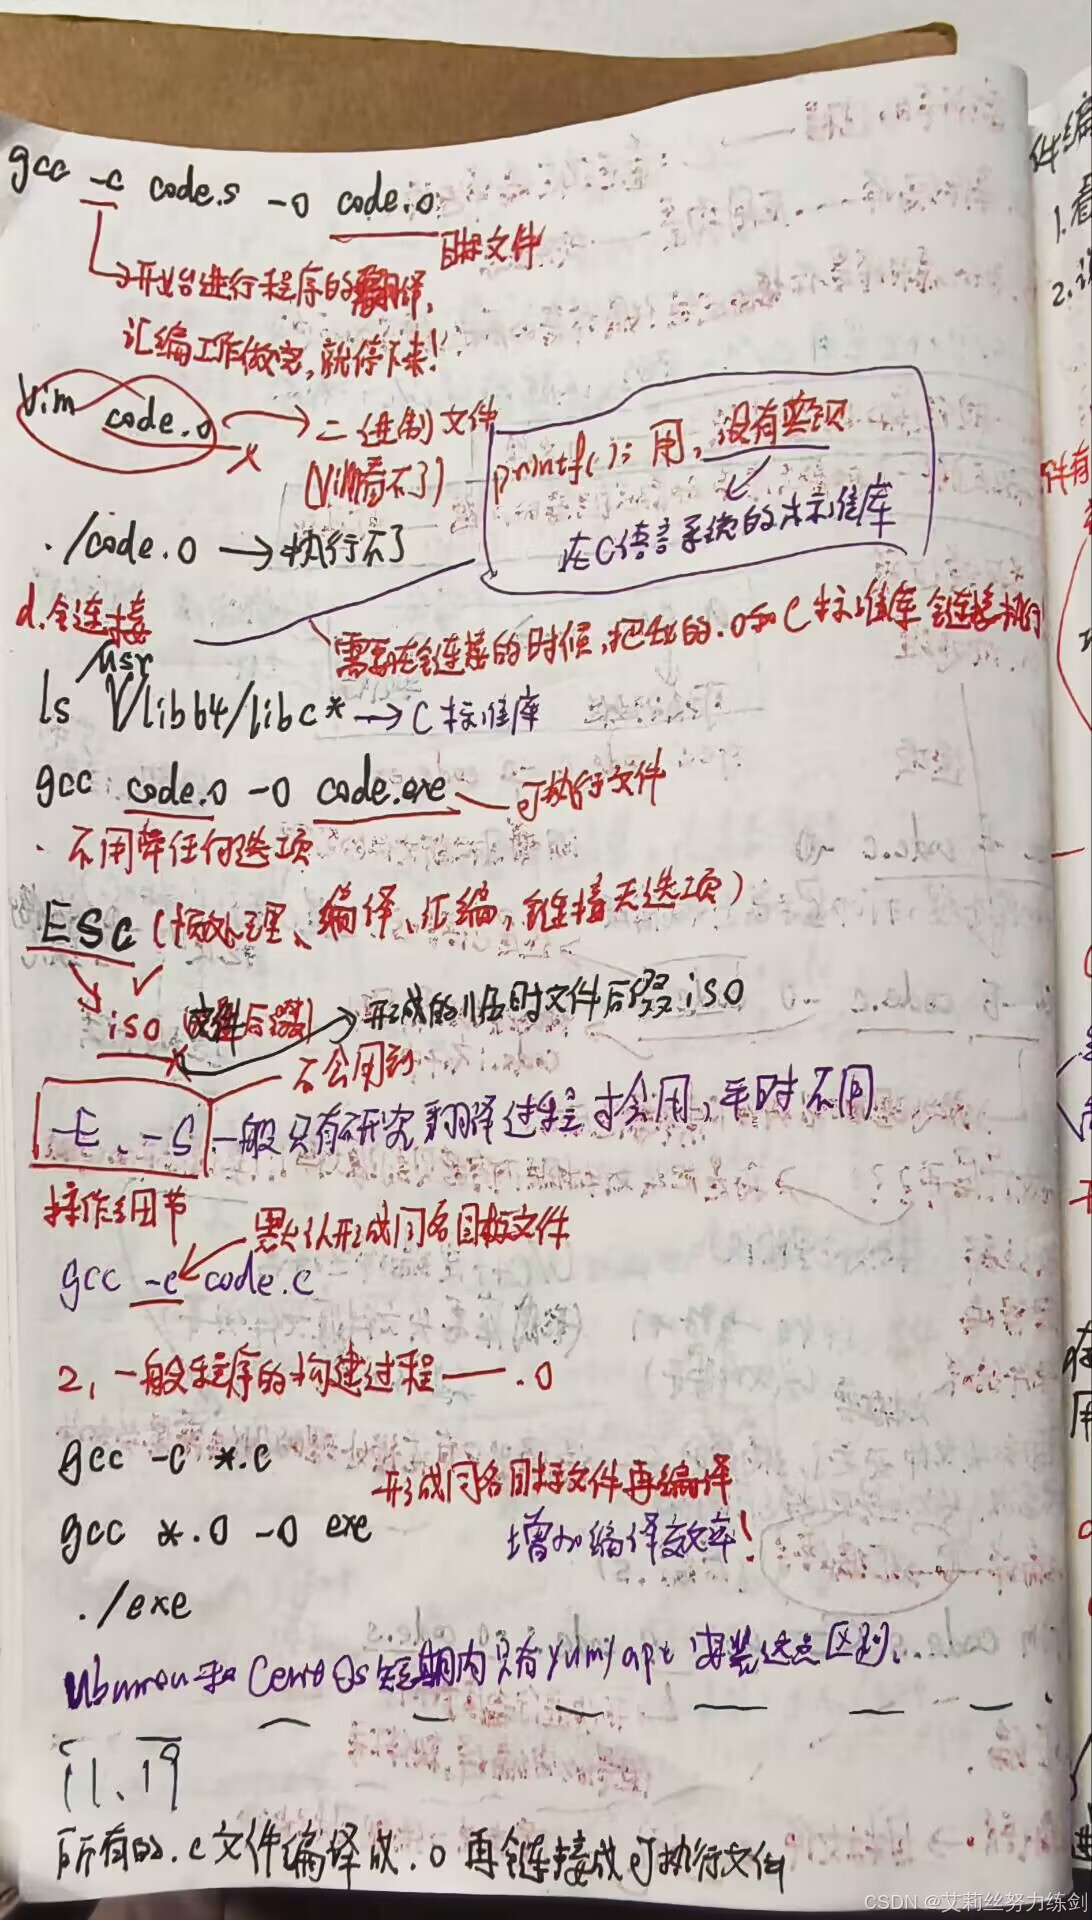 gcc -c code.s -o code.o
目标文件
开始进行程序的翻译,
汇编工作做完,就停下来!
vim code.o → 二进制文件
(vim看不了)
printf(); 用,没有实现
在C语言系统的本标准库
./code.o → 执行不了
d.链接
需要在链接的时候,把我的.o和C标准库链接
/usr
ls /lib64/libc* → C标准库
gcc code.o -o code.exe 可执行文件
不用带任何选项
ESc (预处理、编译、汇编,链接无选项)
iso (文件后缀) 形成的临时文件后缀iso
不会用到
-E、-S 一般只有研究翻译过程才会用,平时不用
操作细节
默认形成同名目标文件
gcc -c code.c
2,一般程序的构建过程——.o
gcc -c *.c
形成同名目标文件再编译
gcc *.o -o exe
增加编译效率!
./exe
Ubuntu和CentOs短期内只有yum/apt 安装这点区别..
11.19
所有的.c文件编译成.o再链接成可执行文件
件编
1.看
2.
件有
在
用
CSDN @艾莉丝努力练剑